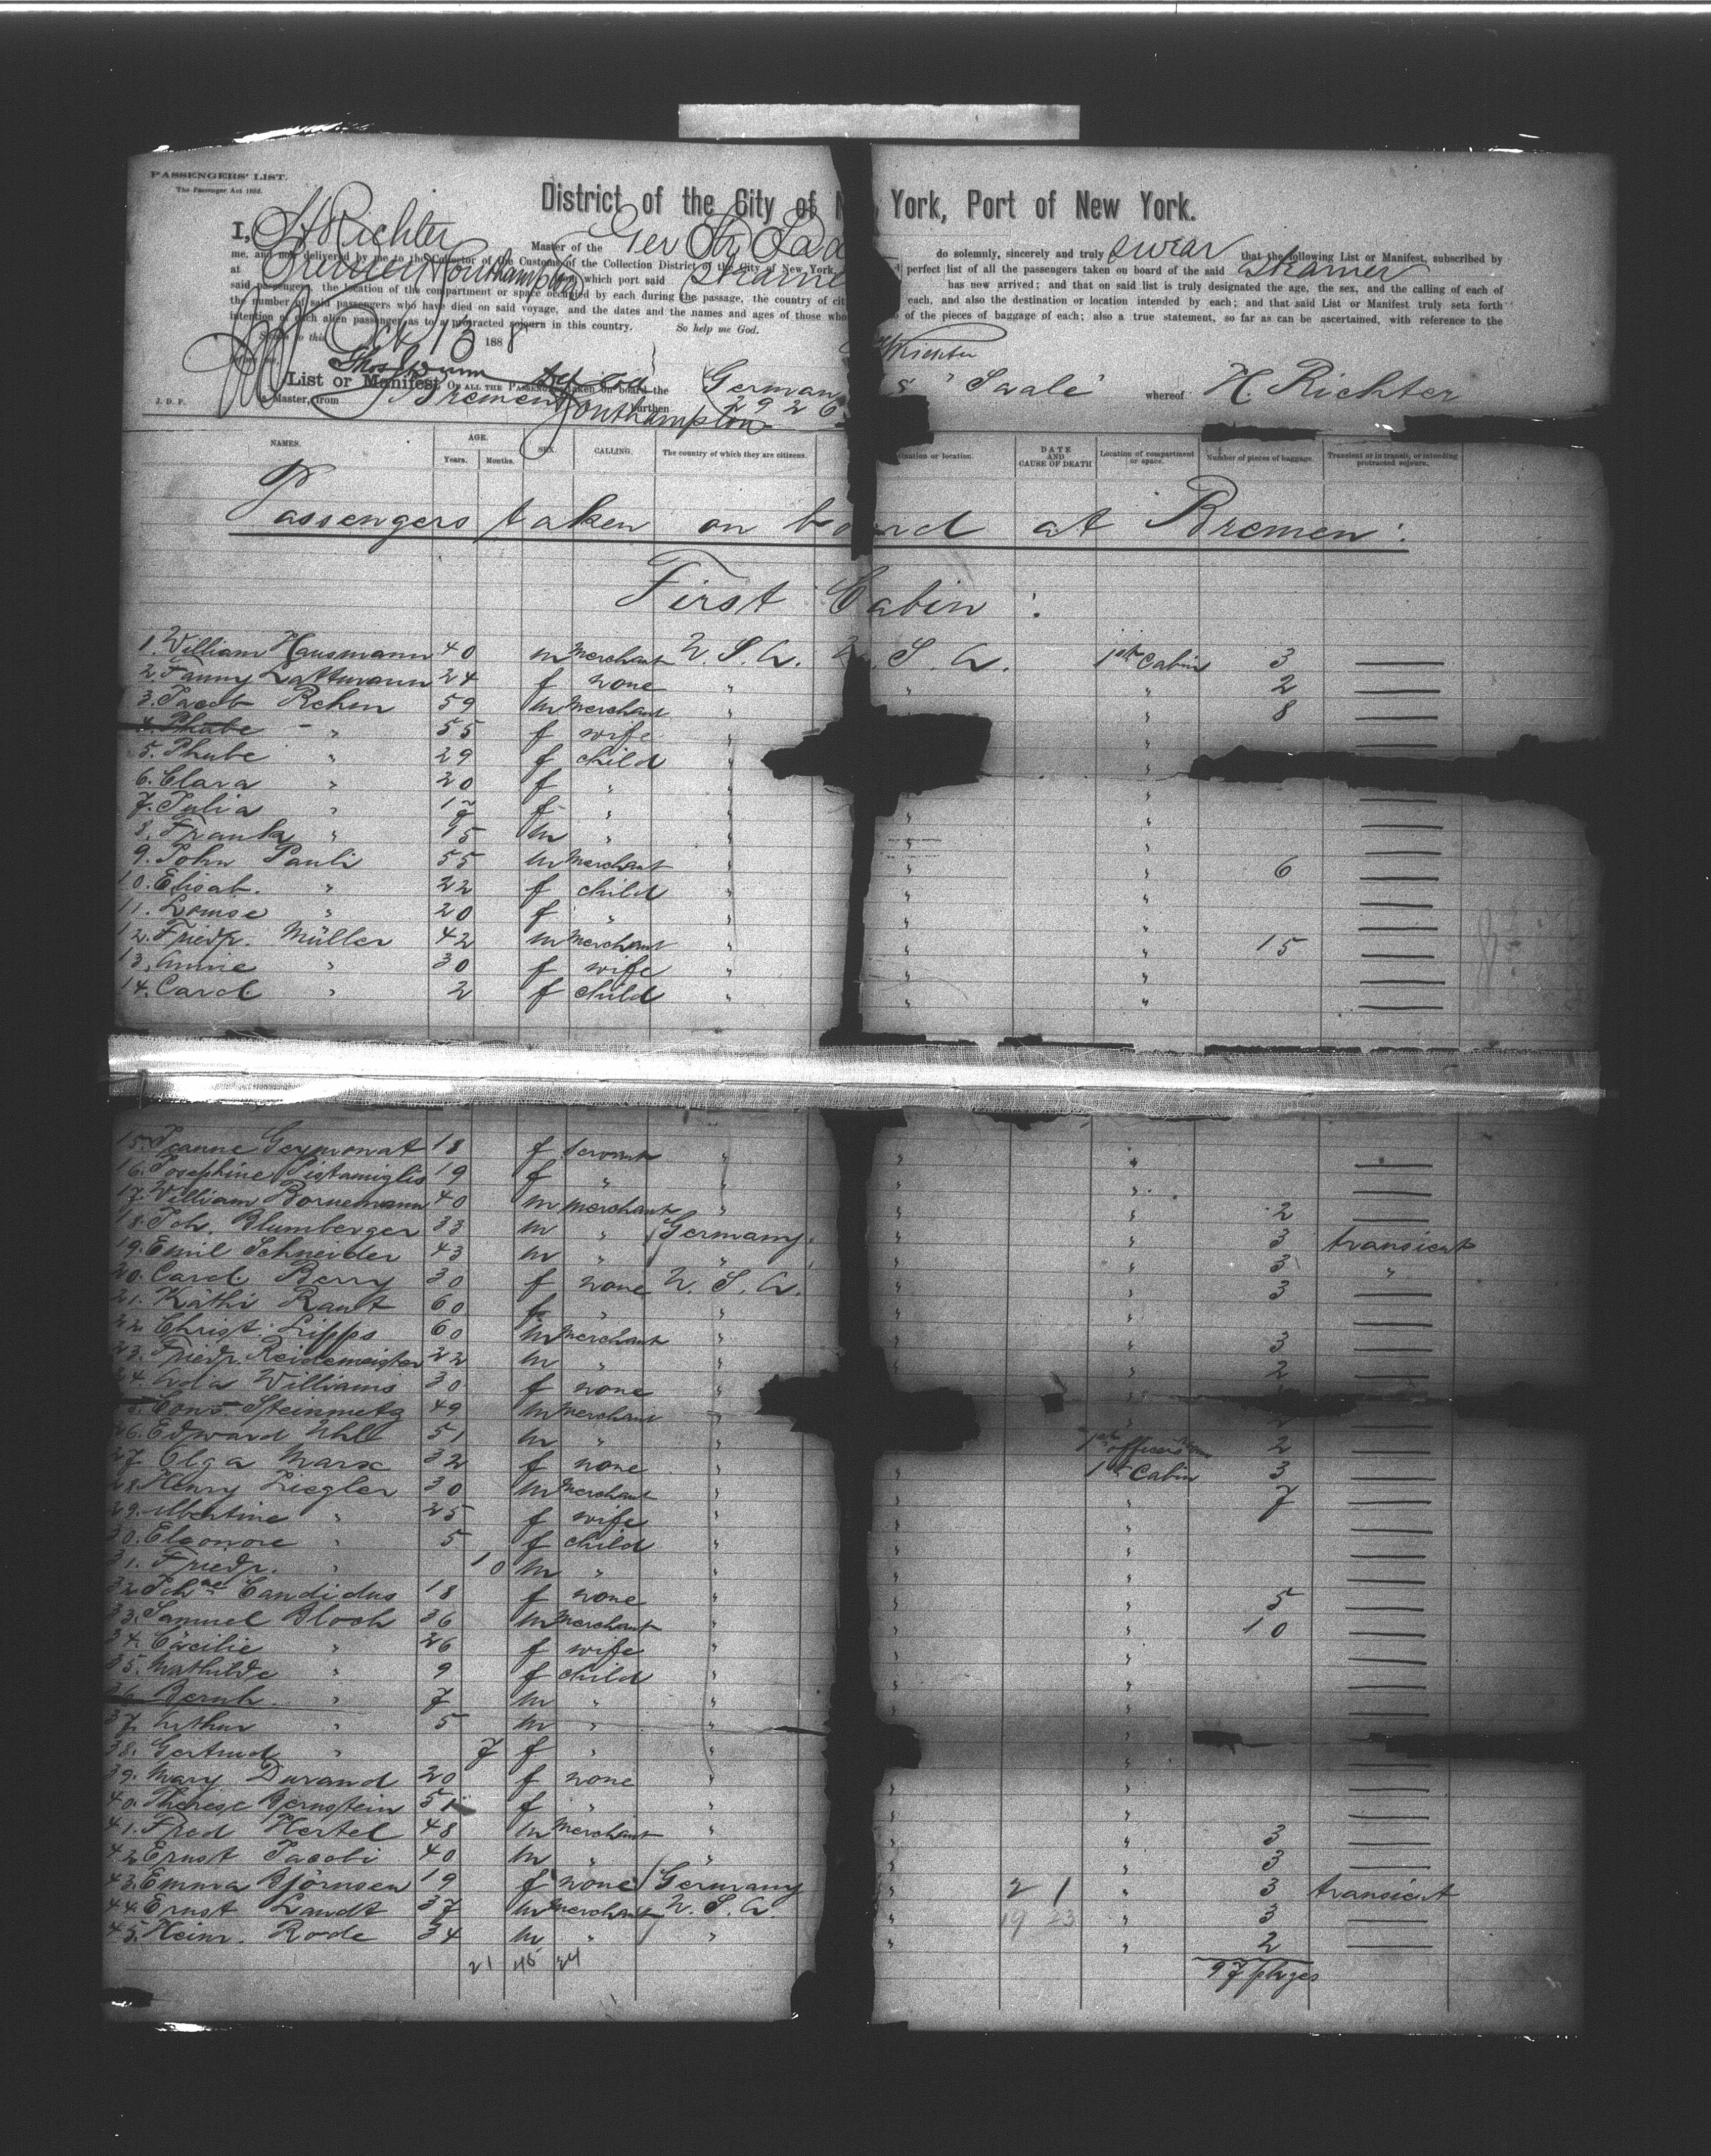 PASSENGERS' LIST.
The Passenger Act 1882.
District of the City of N York, Port of New York.
I, H Richter Master of the Ger Str Saa do solemnly, sincerely and truly swear that the following List or Manifest, subscribed by
me, and now delivered by me to the Collector of the Customs of the Collection District of the City of New York, perfect list of all the passengers taken on board of the said Steamer
at Bremen Southampton which port said Steame has now arrived; and that on said list is truly designated the age, the sex, and the calling of each of
said passengers, the location of the compartment or space occupied by each during the passage, the country of cit each, and also the destination or location intended by each; and that said List or Manifest truly sets forth
the number of said passengers who have died on said voyage, and the dates and the names and ages of those who of the pieces of baggage of each; also a true statement, so far as can be ascertained, with reference to the
intention of each alien passenger as to a protracted sojourn in this country. So help me God.
Sworn to this Oct 13 1888
Richter
before me,
List or Manifest OF ALL THE PASSENGERS taken on board the German s "Saale" whereof H. Richter
J. D. P. is Master, from Bremen burthen 2926
Southampton
NAMES. AGE. SEX. CALLING. The country of which they are citizens. ination or location. DATE AND CAUSE OF DEATH Location of compartment or space. Number of pieces of baggage. Transient or in transit, or intending protracted sojourn.
Years. Months.
Passengers taken on board at Bremen:
First Cabin:
1. William Hausmann 40 m Merchant U. S. A. U. S. A. 1st Cabin 3 —
2. Fanny Lattmann 24 f none " " " 2 —
3. Jacob Rehm 59 m Merchant " " 8 —
4. Phabe - " 55 f wife " " —
5. Phube " 29 f child " "
6. Clara " 20 f " " —
7. Julia " 17 f " " " " —
8. Frank " 15 m " " " " —
9. John Pauli 55 m Merchant " " " 6 —
10. Elisab. " 22 f child " " " —
11. Louise " 20 f " " " " —
12. Friedr. Müller 42 m Merchant " " " 15 —
13. Annie " 30 f wife " " " —
14. Carol. " 2 f child " " " —
15. Jeanne Geymonat 18 f servant " " " —
16. Josephine Pistamiglis 19 f " " " " —
17. William Bornemann 40 m merchant " " " 2 —
18. Joh. Blumberger 33 m " Germany. " " 3 transient
19. Emil Schneider 43 m " " " " 3 "
20. Carol. Berry 30 f none U. S. A. " " 3 —
21. Käthi Raut 60 f " " " " —
22. Christ. Lipps 60 m Merchant " " " 3 —
23. Friedr. Reidemeister 22 m " " " " 2 —
24. Ada Williams 30 f none "
5. Cons. Steinmetz 49 m Merchant " —
26. Edward Uhl 51 m " " 1st officers room 2 —
27. Olga Marx 32 f none " " 1st Cabin 3 —
28. Henry Ziegler 30 m Merchant " " " 7 —
29. Albertine " 25 f wife " " " —
30. Eleonore " 5 f child " " " —
31. Friedr. " 10 m " " " " —
32. Joh.ae Candidus 18 f none " " " 5 —
33. Samuel Bloch 36 m Merchant " " " 10 —
34. Cäcilie " 26 f wife " " " —
35. Mathilde " 9 f child " " " —
36. Bernh. " 7 m " " " " —
37. Arthur " 5 m " " "
38. Gertrud " 7 f " " "
39. Mary Durand 20 f none " " " —
40. Therese Bernstein 51 f " " " " —
41. Fred Hertel 48 m Merchant " " " 3 —
42. Ernst Jacobi 40 m " " " " 3 —
43. Emma Björnsen 19 f none Germany " 2 1 " 3 transient
44. Ernst Landt 37 m Merchant U. S. A. " 19 23 " 3 —
45. Heinr. Rode 34 m " " " " 2 —
21 45 24 97 pkges